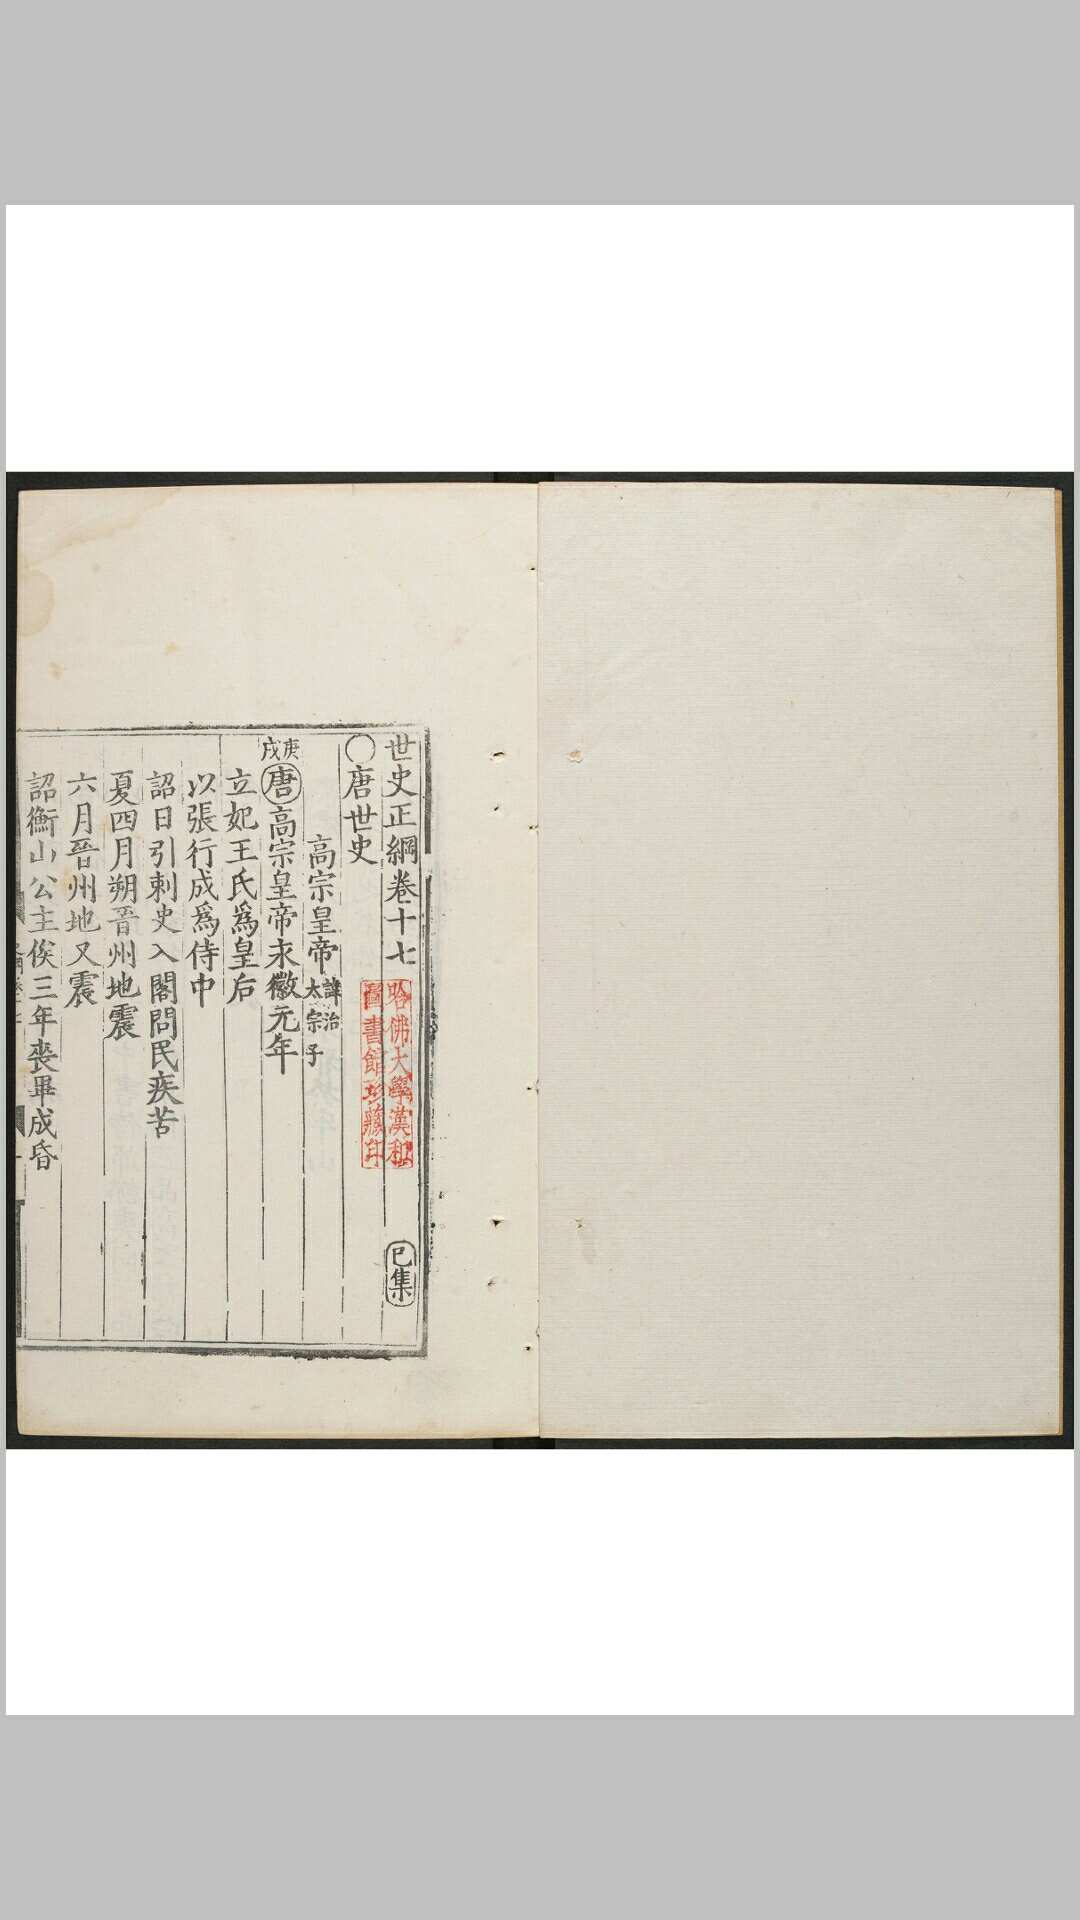 世史正綱卷十七 巳集
○唐世史
高宗皇帝 諱治太宗子
庚戌 唐高宗皇帝永徽元年
立妃王氏爲皇后
以張行成爲侍中
詔日引刺史入閤問民疾苦
夏四月朔晉州地震
六月晉州地又震
詔衡山公主俟三年喪畢成昏
哈佛大學漢和
圖書館珍藏印